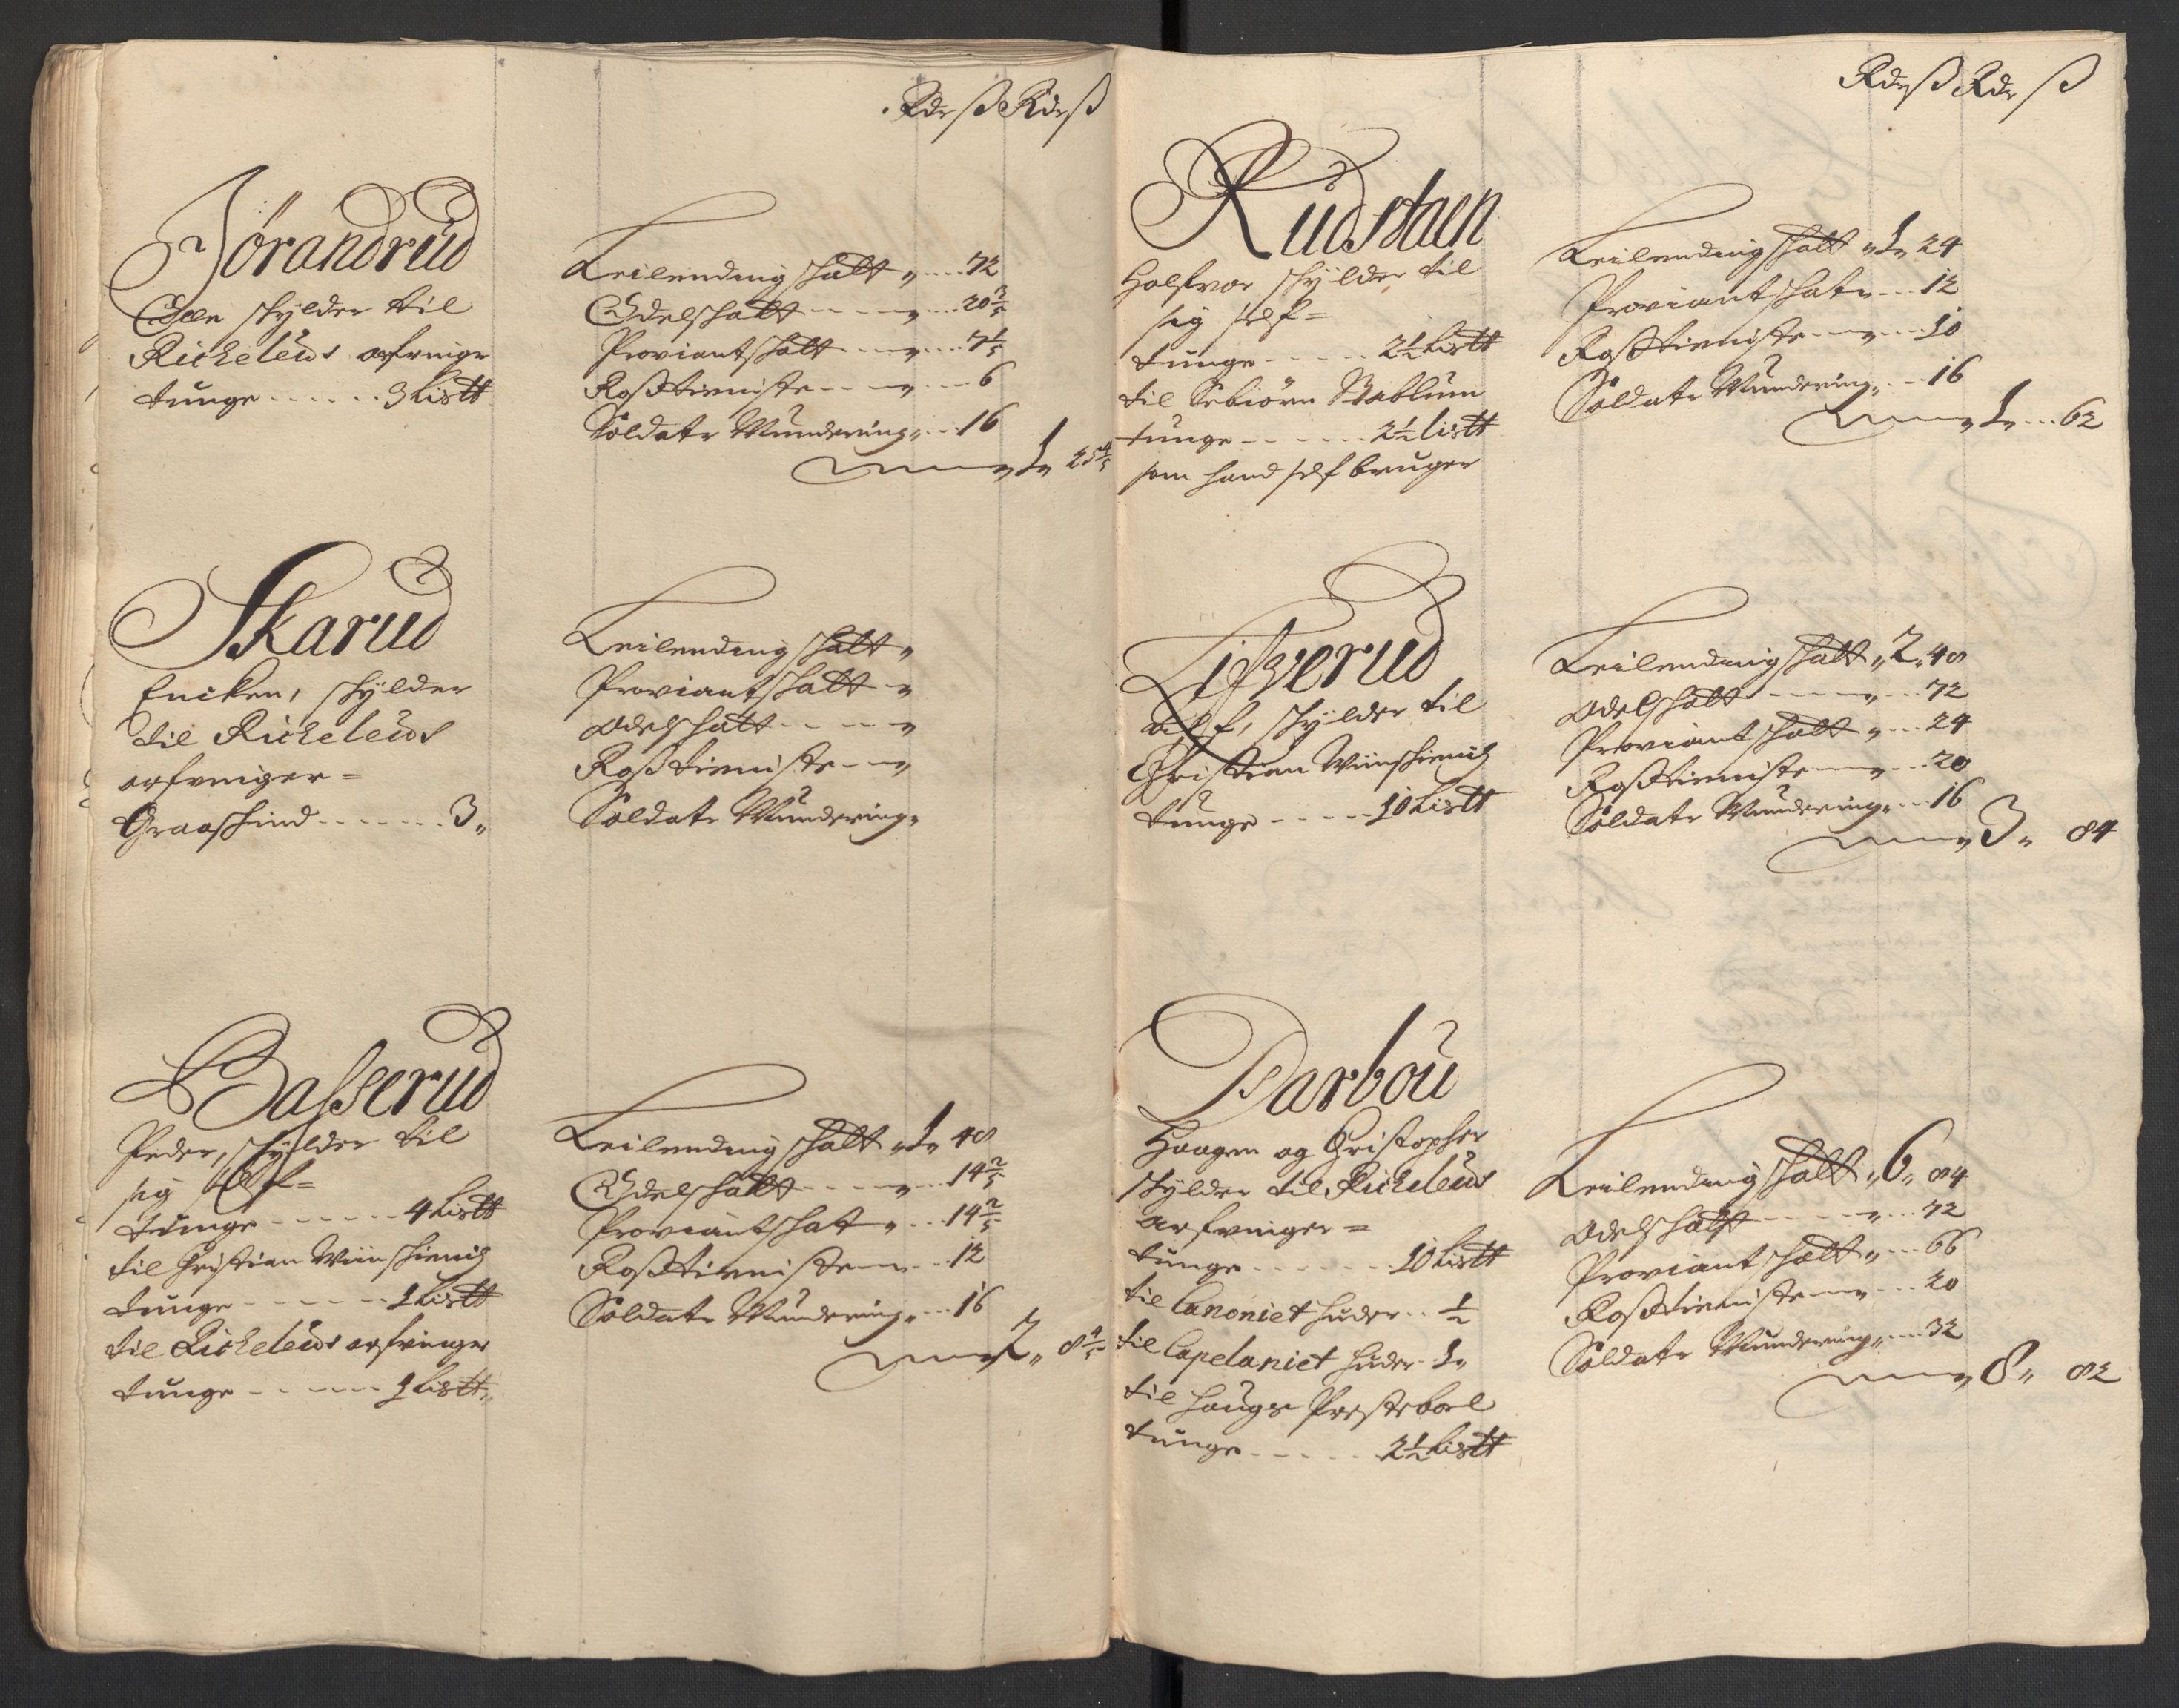 Rdr ß Rdr ß
Jörandrud
Ole skylder til
Richeleus arfvinger
tunge ...... 3 Listt
Leilending skatt „ .... 72
Odelskatt - - - - „ ... 20 2/5
Proviantskatt - - „ ... 7 1/5
Rosstieniste - - - „ ... 6
Soldate Mundering „ ... 16
„ 1 „ 25 4/5
Skarud
Encken, skylder
til Richeleus
arfvinger =
Graaskind ....... 3 „
Leilending skatt „
Proviantskatt - „
Odelskatt - - - - „
Rosstieniste - - „
Soldate Mundering „
Basserud
Peder, skylder til
sig self =
tunge - - - - - 4 Listt
til Christian Wiinskienck
tunge - - - - - 1 Listt
til Richeleus arfvinger
tunge - - - - - 1 Listt „
Leilending skatt „ 1 „ 48
Odelskatt - - - - „ ... 14 2/5
Proviantskat „ ... 14 2/5
Rosstieniste - „ ... 12
Soldate Mundering „ ... 16
„ 2 „ 8 4/5
Rdr ß Rdr ß
Rudstuen
Halfvor skylder til
sig self =
tunge - - - - - 2 1/2 Listt
til Sebiørn Stablum
tunge - - - - - 2 1/2 listt
som hand self bruger
Leilending skatt „ 1 „ 24
Proviantskat „ ... 12
Rosstieniste - - - „ ... 10
Soldate Mundering „ ... 16
„ 1 „ ... 62
Lifverud
skylder til
Christian Wiinskienck
tunge - - - - - 10 Listt
Leilending skatt „ 2 „ 48
Odelskatt - - - - „ ... 72
Proviantskatt „ ... 24
Rosstieniste - - „ ... 20
Soldate Mundering „ ... 16
„ 3 „ 84
Darbou
Haagen og Christopher
skylder til Richeleus
arfvinger =
tunge - - - - - - 10 Listt
til Canoniet huder .. 1/2
til Capelaniet huder - 1 „
til Haugs Presteboel
tunge - - - - - 2 1/2 Listt
Leilending skatt „ 6 „ 84
Odelskatt - - - - „ ... 72
Proviantskatt „ ... 66
Rosstieniste - - „ ... 20
Soldate Mundering „ ... 32
„ 8 „ 82